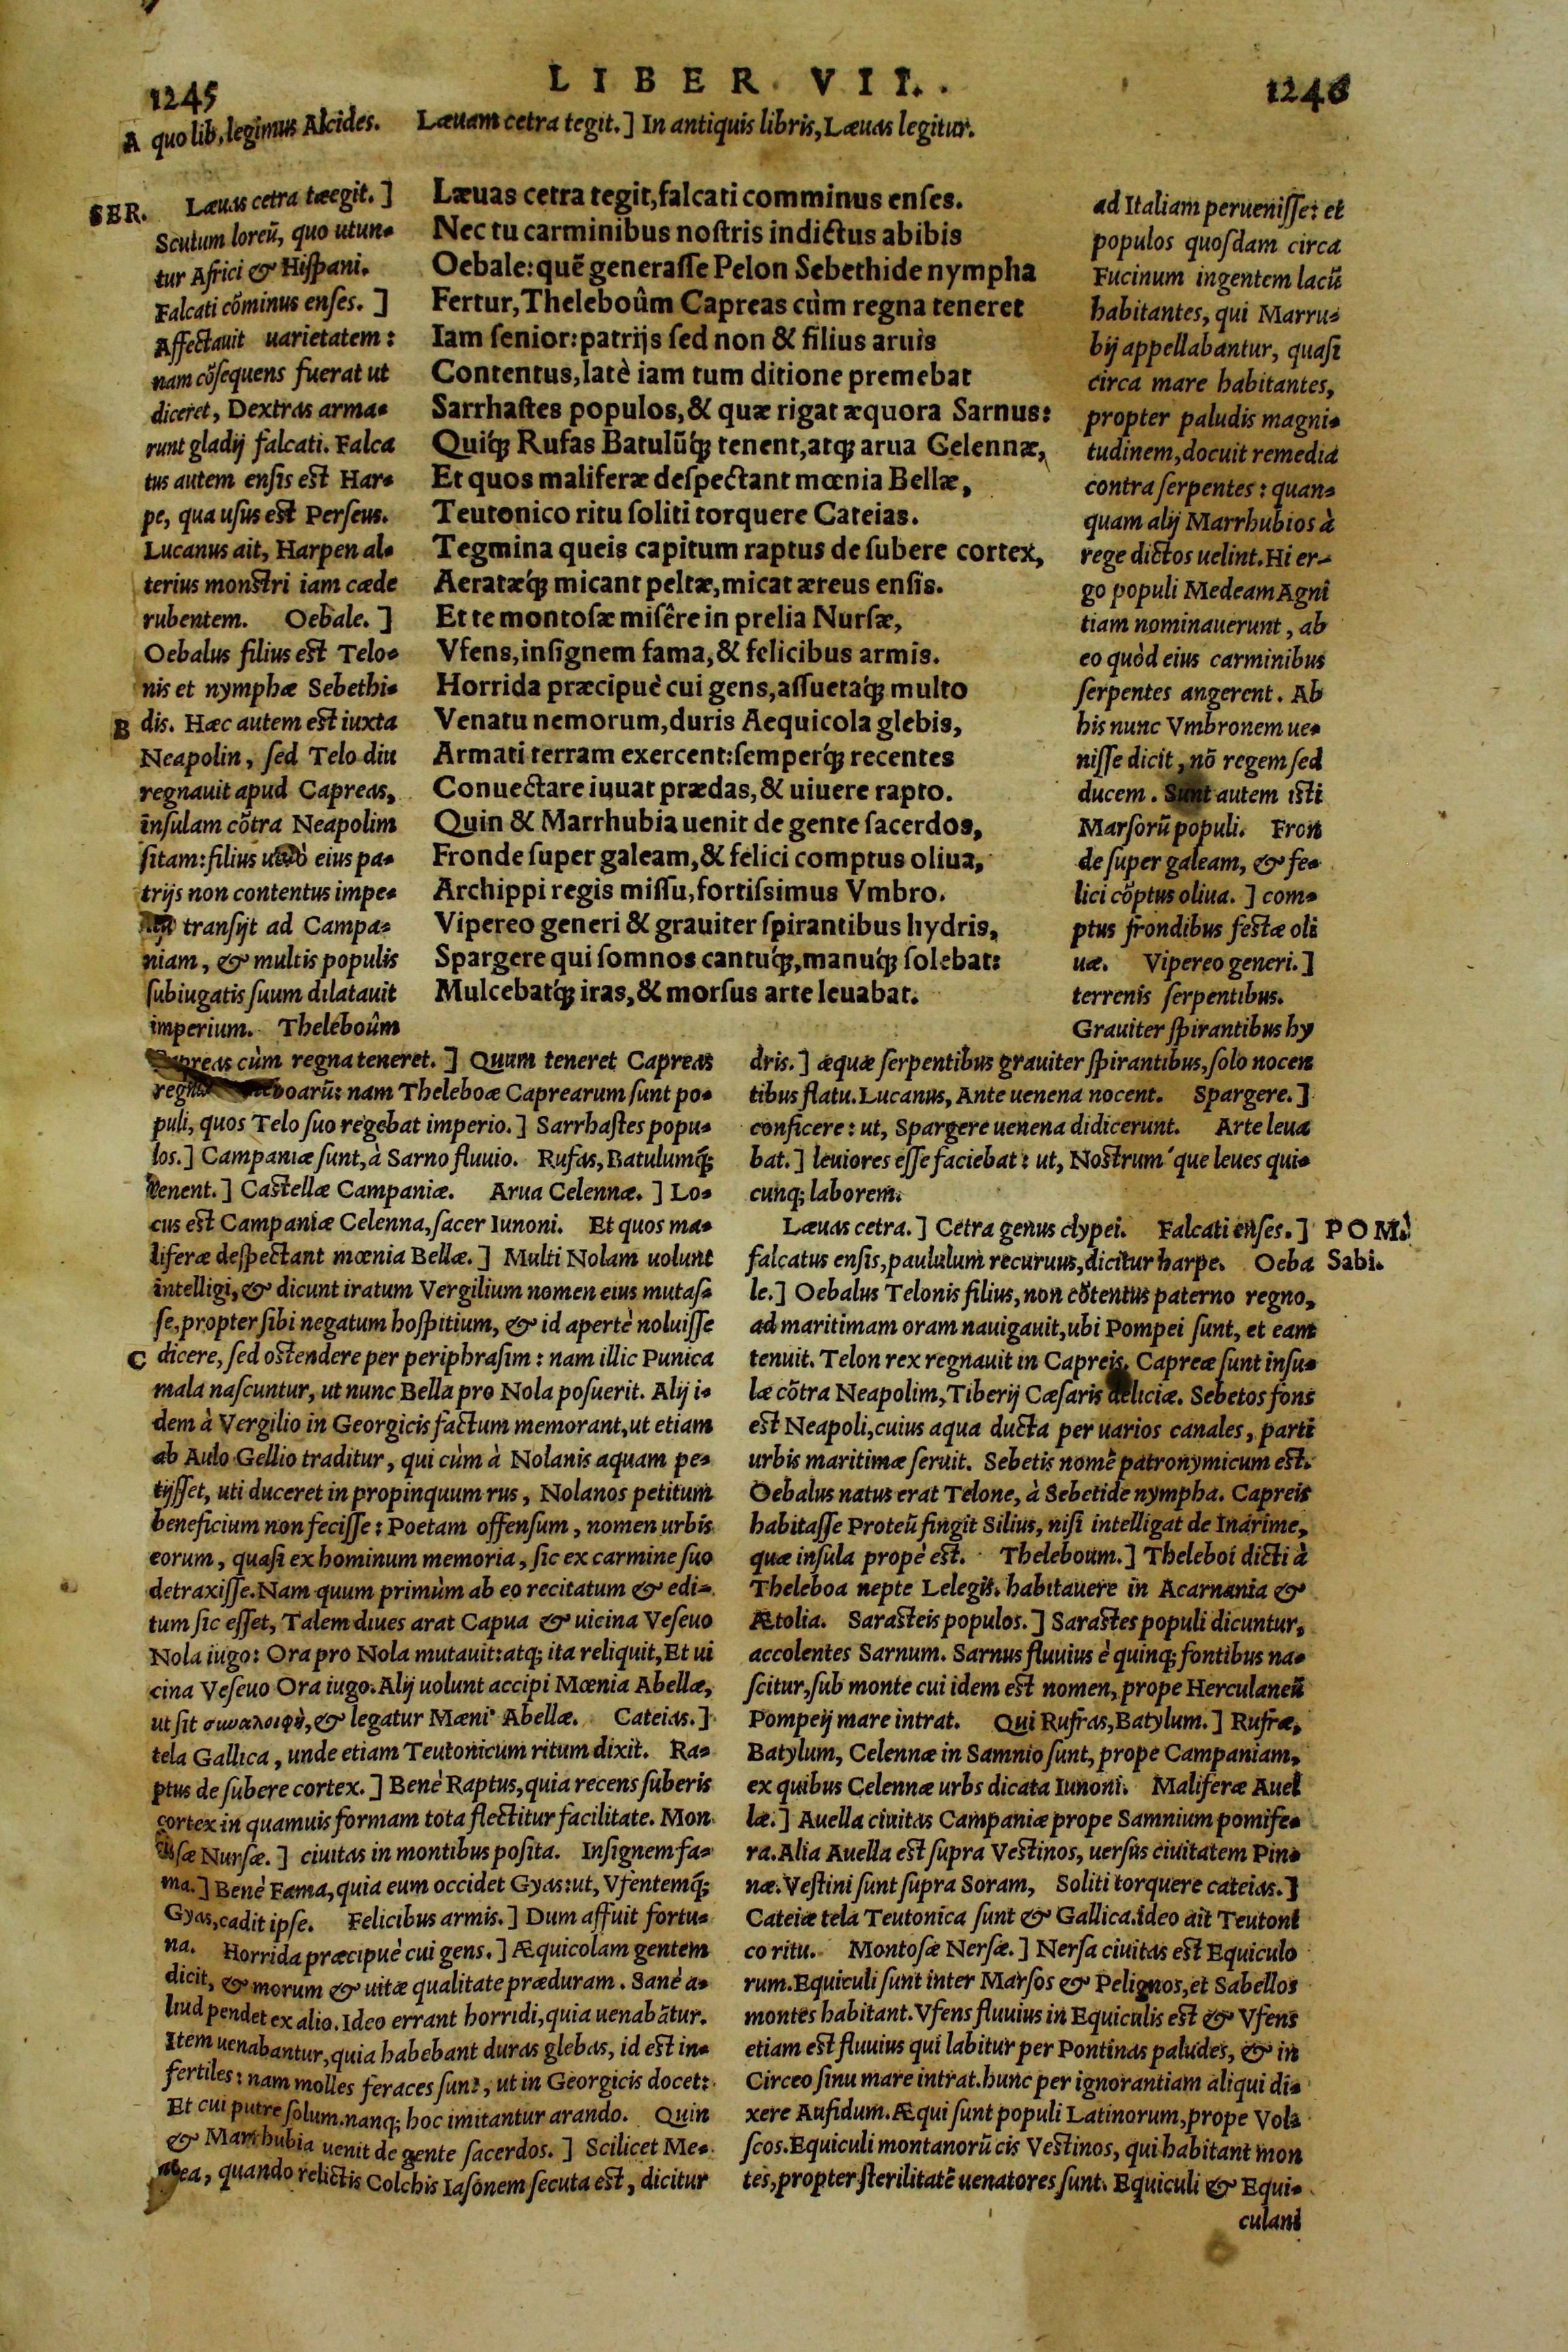 1245
LIBER VII.
1246
A quo lib. legimus Alcides. Læuam cetra tegit.] In antiquis libris, Læuas legitur.
SER. Læuas cetra tæegit.]
Scutum loreũ, quo utun-
tur Africi & Hiſpani.
Falcati cõminus enſes.]
Affectauit uarietatem:
nam cõſequens fuerat ut
diceret, Dextras arma-
runt gladij falcati. Falca
tus autem enſis est Har-
pe, qua uſus est Perſeus.
Lucanus ait, Harpen al-
terius monstri iam cæde
rubentem. Oebale.]
Oebalus filius est Telo-
nis et nymphæ Sebethi-
B dis. Hæc autem est iuxta
Neapolin, ſed Telo diu
regnauit apud Capreas,
inſulam cõtra Neapolim
ſitam: filius eius pa-
trijs non contentus impe-
tranſijt ad Campa-
niam, & multis populis
ſubiugatis ſuum dilatauit
imperium. Theleboûm
Læuas cetra tegit, falcati comminus enſes.
Nec tu carminibus noſtris indictus abibis
Oebale: quẽ generaſſe Pelon Sebethide nympha
Fertur, Theleboûm Capreas cùm regna teneret
Iam ſenior: patrijs ſed non & filius aruis
Contentus, latè iam tum ditione premebat
Sarrhaſtes populos, & quæ rigat æquora Sarnus:
Quiq́; Rufas Batulũq́; tenent, atq; arua Gelennæ,
Et quos maliferæ deſpectant mœnia Bellæ,
Teutonico ritu ſoliti torquere Cateias.
Tegmina queis capitum raptus de ſubere cortex,
Aeratæq́; micant peltæ, micat æreus enſis.
Et te montoſæ miſêre in prelia Nurſæ,
Vfens, inſignem fama, & felicibus armis.
Horrida præcipuè cui gens, aſſuetaq́; multo
Venatu nemorum, duris Aequicola glebis,
Armati terram exercent: ſemperq́; recentes
Conuectare iuuat prædas, & uiuere rapto.
Quin & Marrhubia uenit de gente ſacerdos,
Fronde ſuper galeam, & felici comptus oliua,
Archippi regis miſſu, fortiſsimus Vmbro.
Vipereo generi & grauiter ſpirantibus hydris,
Spargere qui ſomnos cantuq́;, manuq́; ſolebat:
Mulcebatq́; iras, & morſus arte leuabat.
ad Italiam perueniſſe: et
populos quoſdam circa
Fucinum ingentem lacũ
habitantes, qui Marru-
bij appellabantur, quaſi
circa mare habitantes,
propter paludis magni-
tudinem, docuit remedia
contra ſerpentes: quan-
quam alij Marrhubios à
rege dictos uelint. Hi er-
go populi Medeam Agni
tiam nominauerunt, ab
eo quòd eius carminibus
ſerpentes angerent. Ab
his nunc Vmbronem ue-
niſſe dicit, nõ regem ſed
ducem. Sunt autem isti
Marſorũ populi. Fron
de ſuper galeam, & fe-
lici cõptus oliua.] com-
ptus frondibus festæ oli
uæ. Vipereo generi.]
terrenis ſerpentibus.
Grauiter ſpirantibus hy
cùm regna teneret.] Quum teneret Capreas
nam Theleboæ Caprearum ſunt po-
puli, quos Telo ſuo regebat imperio.] Sarrhaſtes popu-
los.] Campaniæ ſunt, à Sarno fluuio. Rufas, Batulumq́;
tenent.] Castellæ Campaniæ. Arua Celennæ.] Lo-
cus est Campaniæ Celenna, ſacer Iunoni. Et quos ma-
liferæ deſpectant mœnia Bellæ.] Multi Nolam uolunt
intelligi, & dicunt iratum Vergilium nomen eius mutaſ-
ſe, propter ſibi negatum hoſpitium, & id apertè noluiſſe
C dicere, ſed ostendere per periphraſim: nam illic Punica
mala naſcuntur, ut nunc Bella pro Nola poſuerit. Alij i-
dem à Vergilio in Georgicis factum memorant, ut etiam
ab Aulo Gellio traditur, qui cùm à Nolanis aquam pe-
tijſſet, uti duceret in propinquum rus, Nolanos petitum
beneficium non feciſſe: Poetam offenſum, nomen urbis
eorum, quaſi ex hominum memoria, ſic ex carmine ſuo
detraxiſſe. Nam quum primùm ab eo recitatum & edi-
tum ſic eſſet, Talem diues arat Capua & uicina Veſeuo
Nola iugo: Ora pro Nola mutauit: atq; ita reliquit, Et ui
cina Veſeuo Ora iugo. Alij uolunt accipi Mœnia Abellæ,
ut ſit συναλοιφὴ, & legatur Mæni' Abellæ. Cateias.]
tela Gallica, unde etiam Teutonicum ritum dixit. Ra-
ptus de ſubere cortex.] Benè Raptus, quia recens ſuberis
cortex in quamuis formam tota flectitur facilitate. Mon
ſæ Nurſæ.] ciuitas in montibus poſita. Inſignem fa-
ma.] Benè Fama, quia eum occidet Gyas: ut, Vfentemq́;
Gyas, cadit ipſe. Felicibus armis.] Dum affuit fortu-
na. Horrida præcipuè cui gens.] Æquicolam gentem
dicit, & morum & uitæ qualitate præduram. Sanè a-
liud pendet ex alio. Ideo errant horridi, quia uenabãtur.
Item uenabantur, quia habebant duras glebas, id est in-
fertiles: nam molles feraces ſunt, ut in Georgicis docet:
Et cui putre ſolum. nanq; hoc imitantur arando. Quin
& Marrhubia uenit de gente ſacerdos.] Scilicet Me-
dea, quando relictis Colchis Iaſonem ſecuta est, dicitur
dris.] æquæ ſerpentibus grauiter ſpirantibus, ſolo nocen
tibus flatu. Lucanus, Ante uenena nocent. Spargere.]
conficere: ut, Spargere uenena didicerunt. Arte leua
bat.] leuiores eſſe faciebat: ut, Nostrum'que leues qui-
cunq; laborem.
Læuas cetra.] Cetra genus clypei. Falcati enſes.] POM.
falcatus enſis, paululum recuruus, dicitur harpe. Oeba Sabi.
le.] Oebalus Telonis filius, non cõtentus paterno regno,
ad maritimam oram nauigauit, ubi Pompei ſunt, et eam
tenuit. Telon rex regnauit in Capreis. Capreæ ſunt inſu-
læ cõtra Neapolim, Tiberij Cæſaris deliciæ. Sebetos fons
est Neapoli, cuius aqua ducta per uarios canales, parti
urbis maritimæ ſeruit. Sebetis nomẽ patronymicum est.
Oebalus natus erat Telone, à Sebetide nympha. Capreis
habitaſſe Proteũ fingit Silius, niſi intelligat de Inarime,
quæ inſula propè est. Theleboum.] Theleboi dicti à
Theleboa nepte Lelegis. habitauere in Acarnania &
Ætolia. Sarasteis populos.] Sarastes populi dicuntur,
accolentes Sarnum. Sarnus fluuius è quinq; fontibus na-
ſcitur, ſub monte cui idem est nomen, prope Herculaneũ
Pompeij mare intrat. Qui Rufras, Batylum.] Rufræ,
Batylum, Celennæ in Samnio ſunt, prope Campaniam,
ex quibus Celennæ urbs dicata Iunoni. Maliferæ Auel
læ.] Auella ciuitas Campaniæ prope Samnium pomife-
ra. Alia Auella est ſupra Vestinos, uerſus ciuitatem Pin-
næ. Veſtini ſunt ſupra Soram, Soliti torquere cateias.]
Cateiæ tela Teutonica ſunt & Gallica. ideo ait Teutoni
co ritu. Montoſæ Nerſæ.] Nerſa ciuitas est Equiculo
rum. Equiculi ſunt inter Marſos & Pelignos, et Sabellos
montes habitant. Vfens fluuius in Equiculis est & Vfens
etiam est fluuius qui labitur per Pontinas paludes, & in
Circeo ſinu mare intrat. hunc per ignorantiam aliqui di-
xere Aufidum. Æqui ſunt populi Latinorum, prope Vol-
ſcos. Equiculi montanorũ cis Vestinos, qui habitant mon
tes, propter ſterilitatẽ uenatores ſunt. Equiculi & Equi-
culani